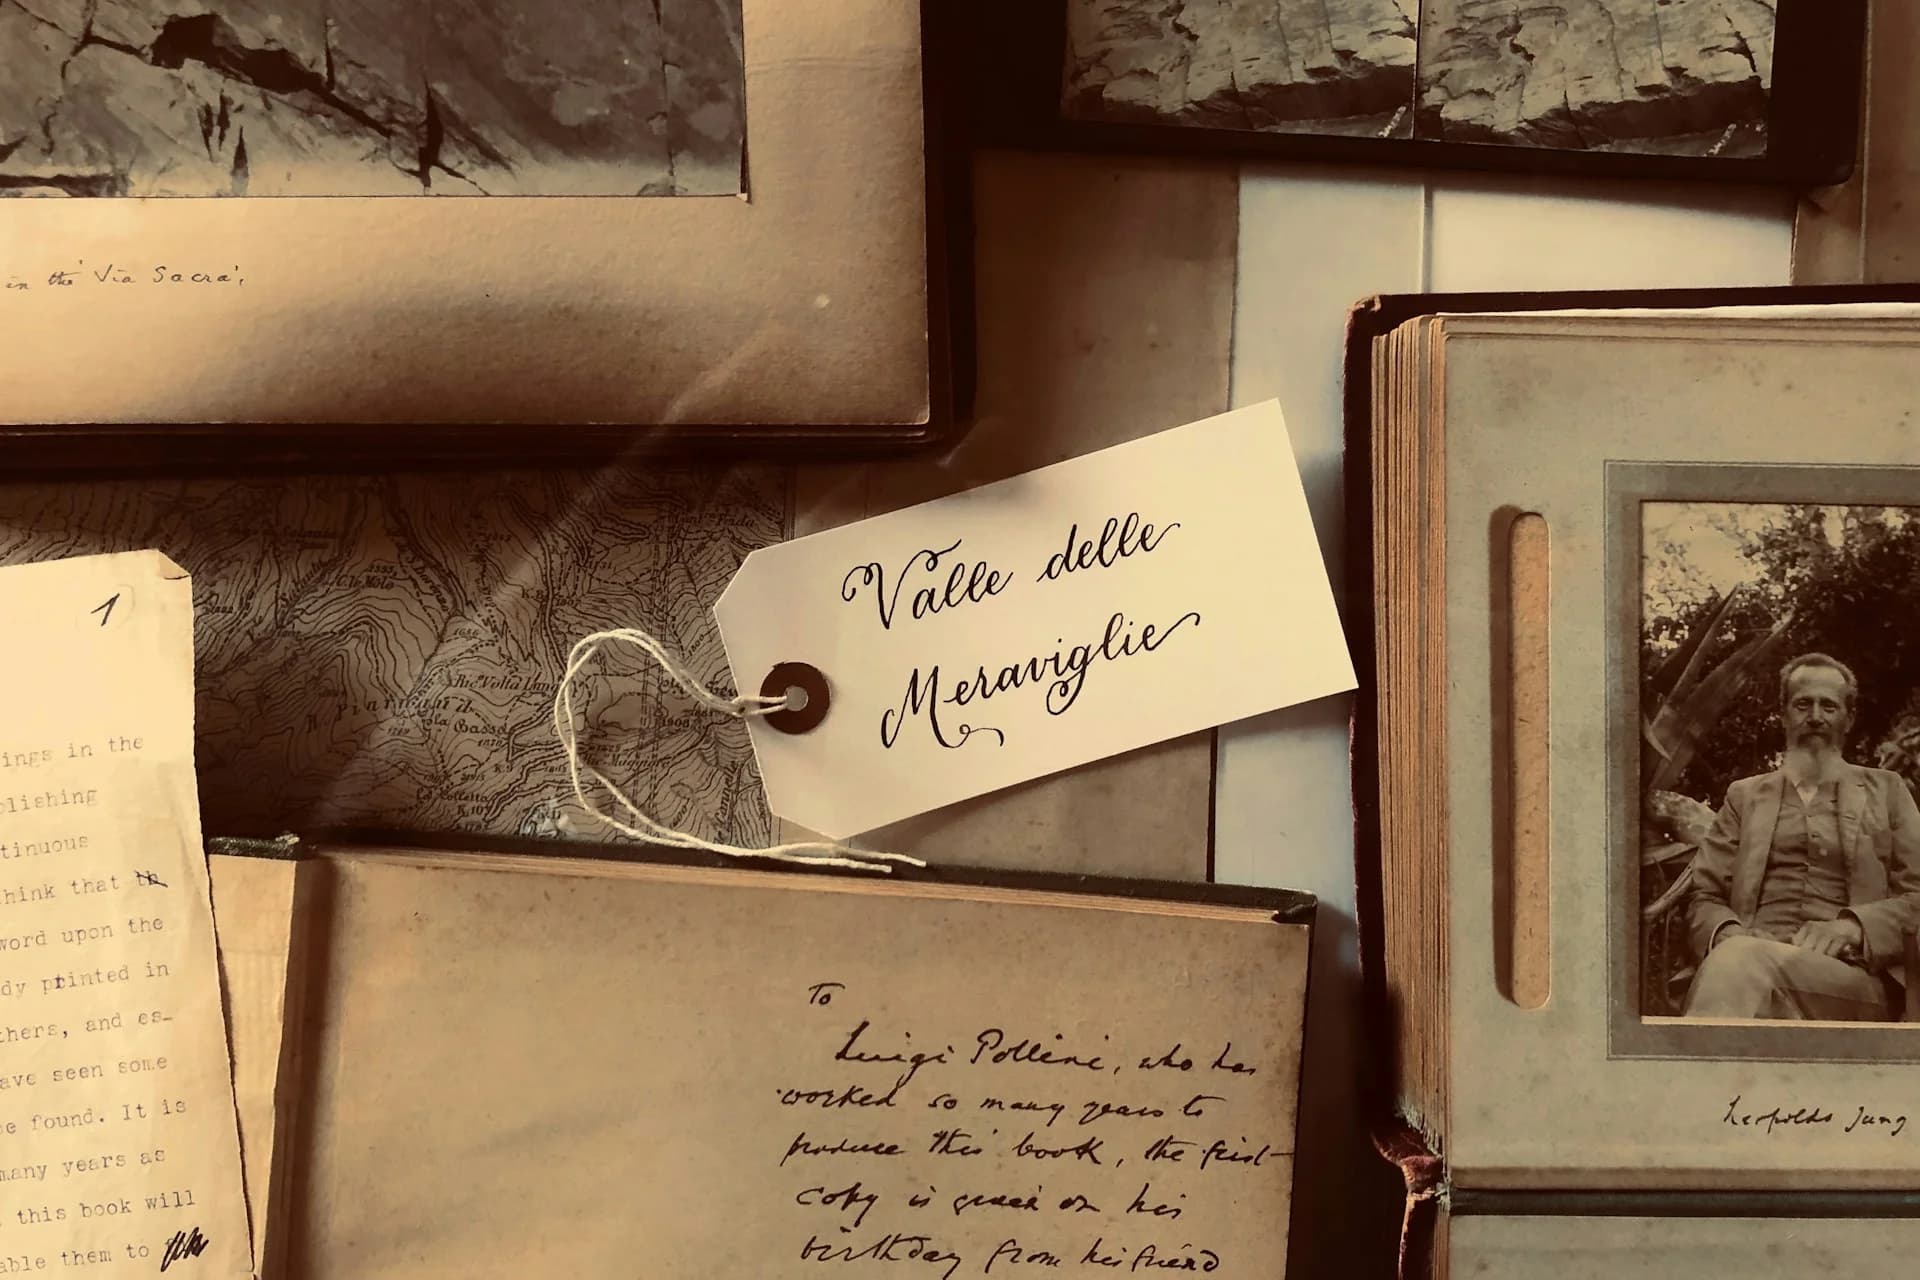 in the 'Via Sacra',
Valle delle
Meraviglie
1
ings in the
blishing
tinuous
hink that th
word upon the
dy printed in
thers, and es-
ave seen some
be found. It is
many years as
this book will
able them to
To
Luigi Pollini, who has
worked so many years to
produce this book, the first
copy is given on his
birthday from his friend
Leopoldo Jung